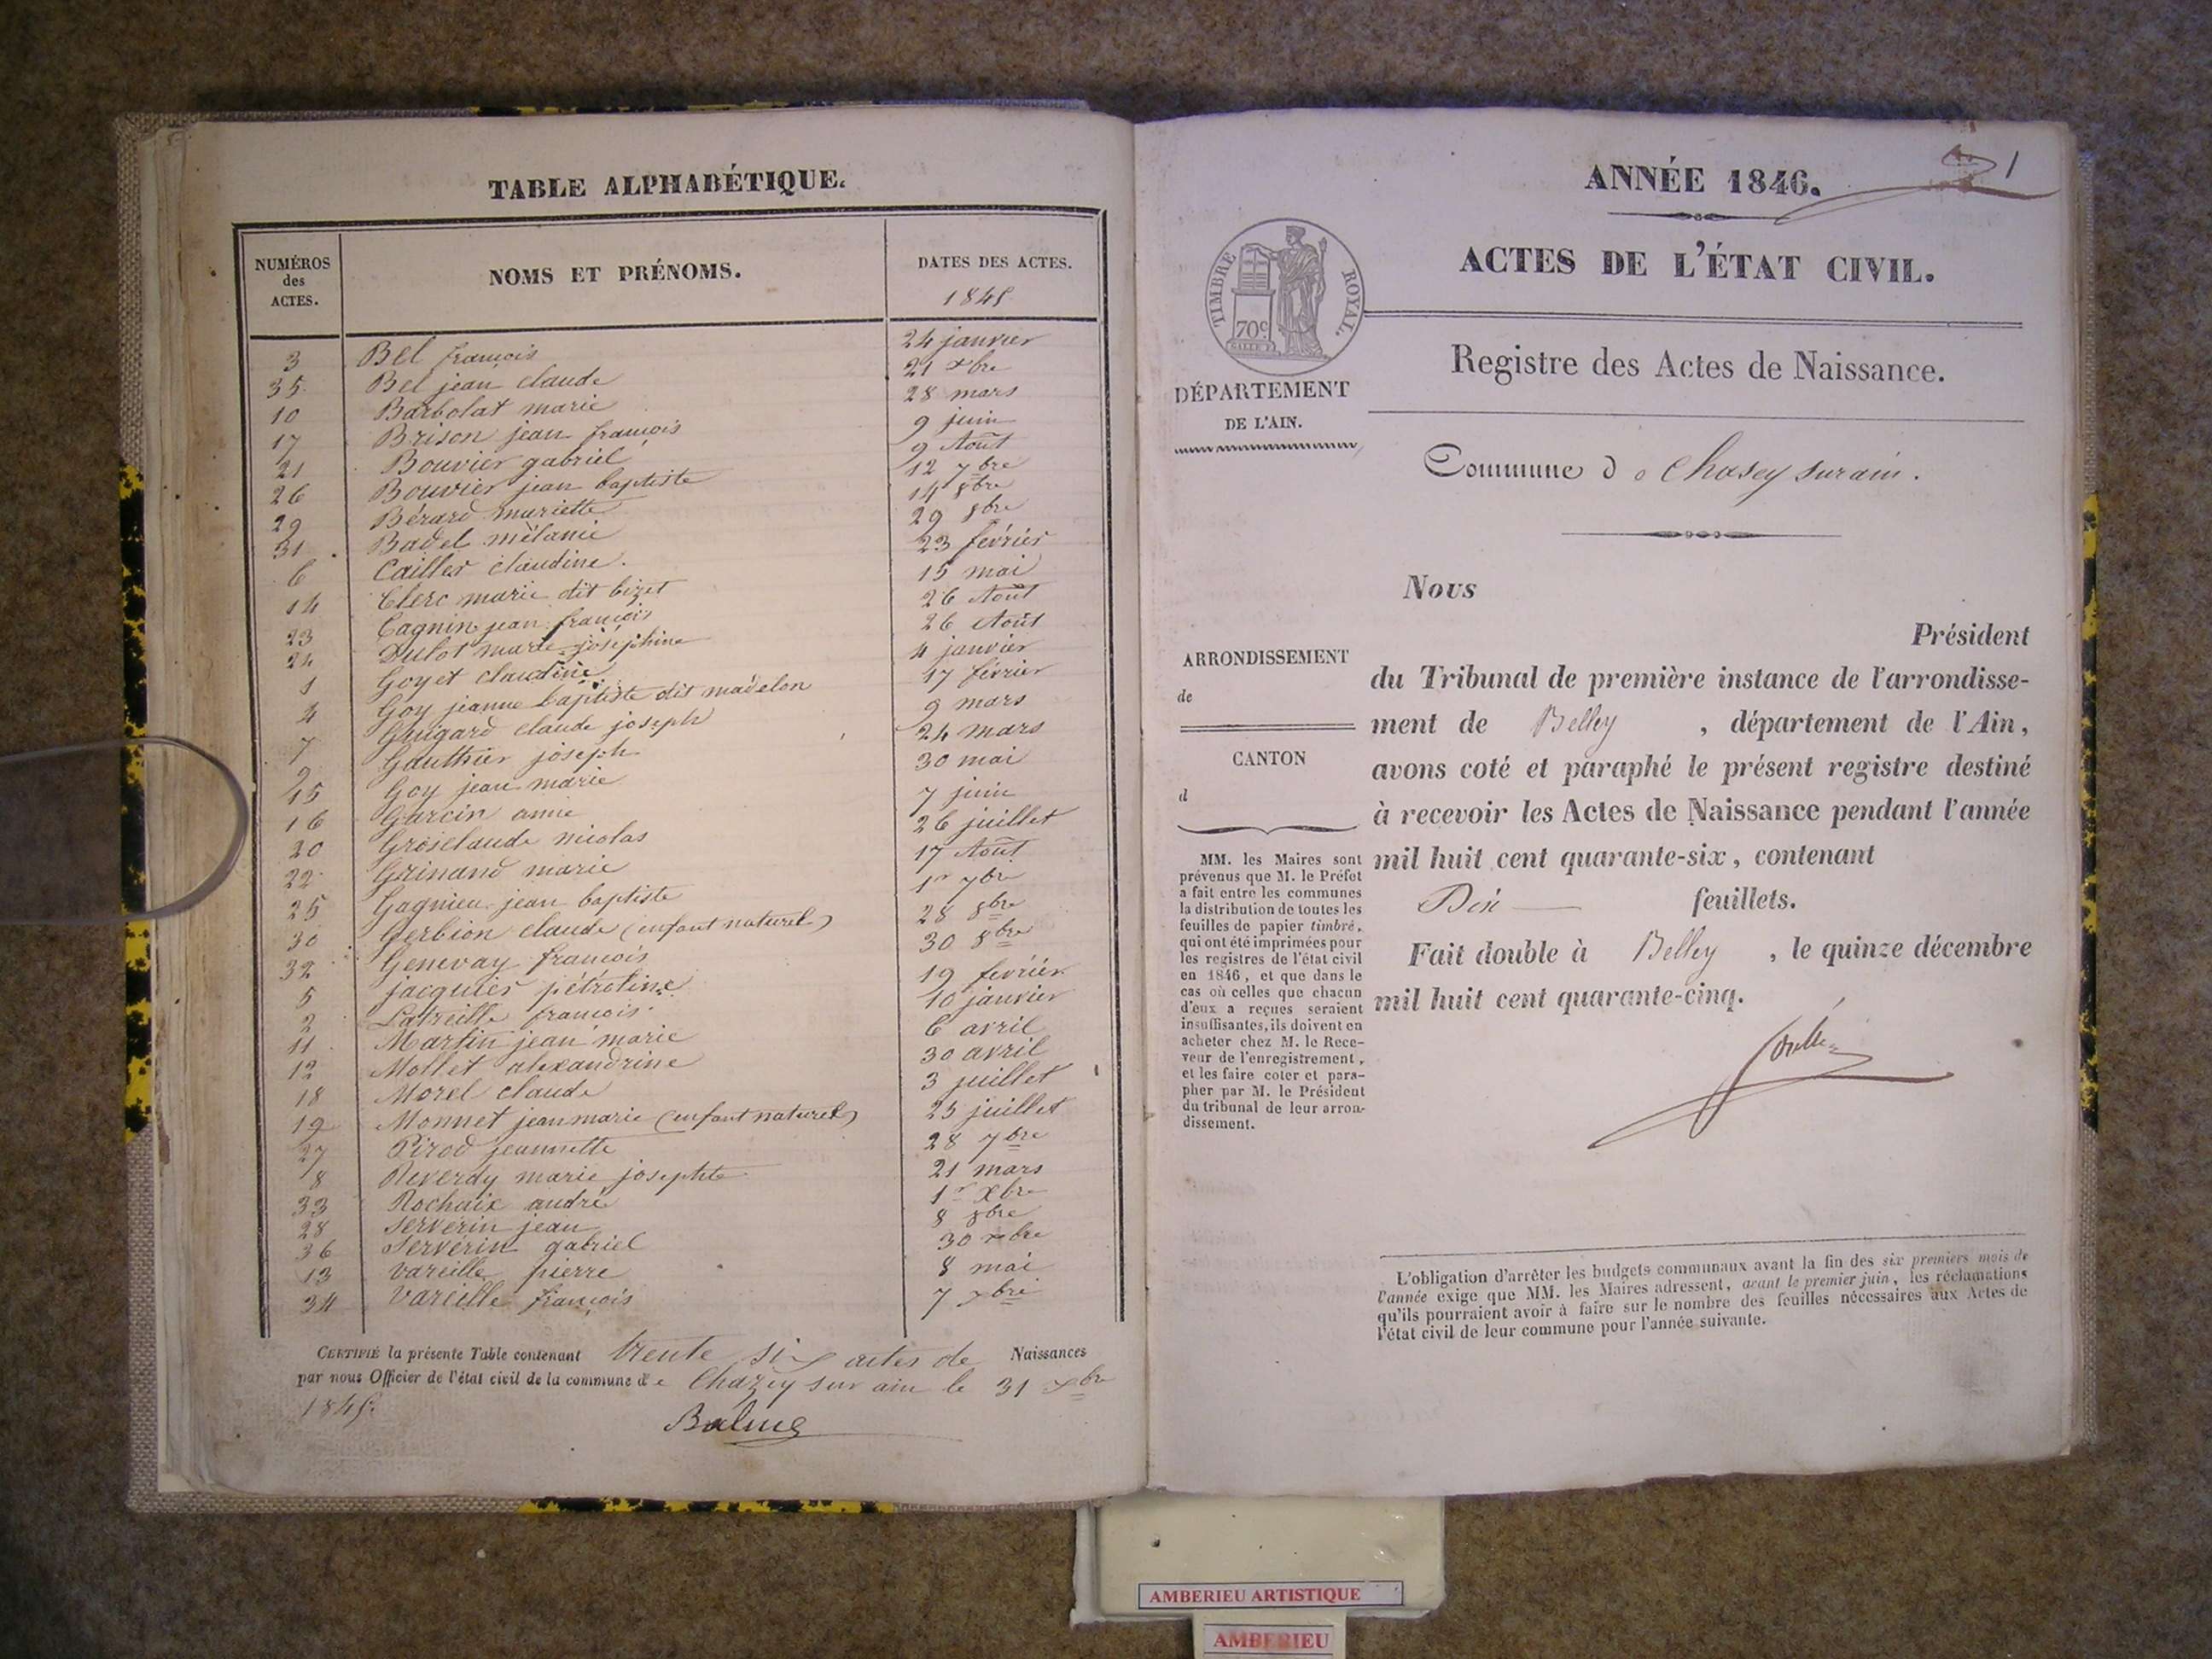 TABLE ALPHABÉTIQUE.
NUMÉROS des ACTES.
NOMS ET PRÉNOMS.
DATES DES ACTES.
1845
3 Bel françois 24 janvier
35 Bel jean claude 21 xbre
10 Barbolat marie 28 mars
17 Brison jean françois 9 juin
21 Bouvier gabriel 9 Août
26 Bouvier jean baptiste 12 7bre
29 Bérard mariette 14 8bre
31 Badel mélanie 29 8bre
6 Cailler claudine. 23 février
14 Clerc marie dit bizet 15 mai
23 Cagnin jean françois 26 Août
24 Dulot marie joséphine 26 Août
1 Goyet claudine 4 janvier
4 Goy jeanne baptiste dit madelon 17 février
7 Guigard claude joseph 9 mars
9 Gauthier joseph 24 mars
15 Goy jean marie 30 mai
16 Garcin annie 7 juin
20 Grosclaude nicolas 26 juillet
22 Grinand marie 17 Août
25 Gagnieu jean baptiste 1er 7bre
30 Gerbion claude (enfant naturel) 28 8bre
32 Genevay françois 30 8bre
5 jacquier pétrotine 19 février
2 Latreille françois. 10 janvier
11 Martin jean marie 6 avril
12 Mollet alexandrine 30 avril
18 Morel claude 3 juillet
19 Monnet jean marie (enfant naturel) 25 juillet
27 Pirod jeannette 28 7bre
8 Reverdy marie josephte 21 mars
33 Rochaix andré 1er Xbre
28 serverin jean 8 8bre
36 Serverin gabriel 30 xbre
13 vareille pierre 8 mai
34 vareille françois 7 xbre
CERTIFIÉ la présente Table contenant trente six actes de Naissances
par nous Officier de l'état civil de la commune de Chazey sur ain le 31 xbre
1845.
Balme
1
ANNÉE 1846.
ACTES DE L'ÉTAT CIVIL.
TIMBRE ROYAL.
70c
DÉPARTEMENT
DE L'AIN.
Registre des Actes de Naissance.
Commune de Chasey sur ain.
Nous
Président
du Tribunal de première instance de l'arrondisse-
ment de Belley, département de l'Ain,
avons coté et paraphé le présent registre destiné
à recevoir les Actes de Naissance pendant l'année
mil huit cent quarante-six, contenant
Dix feuillets.
Fait double à Belley, le quinze décembre
mil huit cent quarante-cinq.
ARRONDISSEMENT
de
CANTON
d
MM. les Maires sont
prévenus que M. le Préfet
a fait entre les communes
la distribution de toutes les
feuilles de papier timbré,
qui ont été imprimées pour
les registres de l'état civil
en 1846, et que dans le
cas où celles que chacun
d'eux a reçues seraient
insuffisantes, ils doivent en
acheter chez M. le Rece-
veur de l'enregistrement,
et les faire coter et para-
pher par M. le Président
du tribunal de leur arron-
dissement.
L'obligation d'arrêter les budgets communaux avant la fin des six premiers mois de
l'année exige que MM. les Maires adressent, avant le premier juin, les réclamations
qu'ils pourraient avoir à faire sur le nombre des feuilles nécessaires aux Actes de
l'état civil de leur commune pour l'année suivante.
AMBERIEU ARTISTIQUE
AMBERIEU